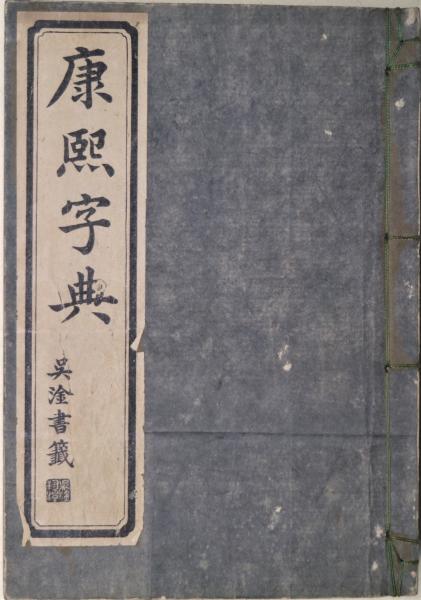 康熙字典
吳淦書籤